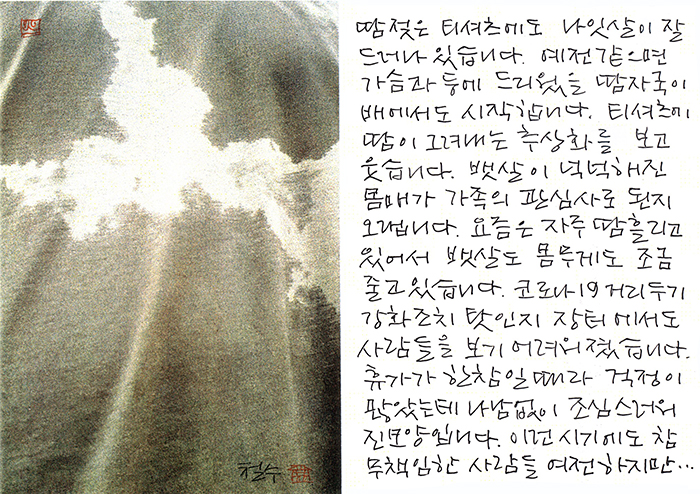 땀젖은 티셔츠에도 나잇살이 잘
드러나 있습니다. 예전같으면
가슴과 등에 드리웠을 땀자국이
배에서도 시작합니다. 티셔츠에
땀이 그려내는 추상화를 보고
웃습니다. 뱃살이 넉넉해진
몸매가 가족의 관심사로 된지
오랩니다. 요즘은 자주 땀흘리고
있어서 뱃살도 몸무게도 조금
줄고있습니다. 코로나19 거리두기
강화조치 탓인지 장터에서도
사람들을 보기 어려워졌습니다.
휴가가 한참일 때라 걱정이
많았는데 나남없이 조심스러워
진모양입니다. 이런 시기에도 참
무책임한 사람들 여전하지만…
철수